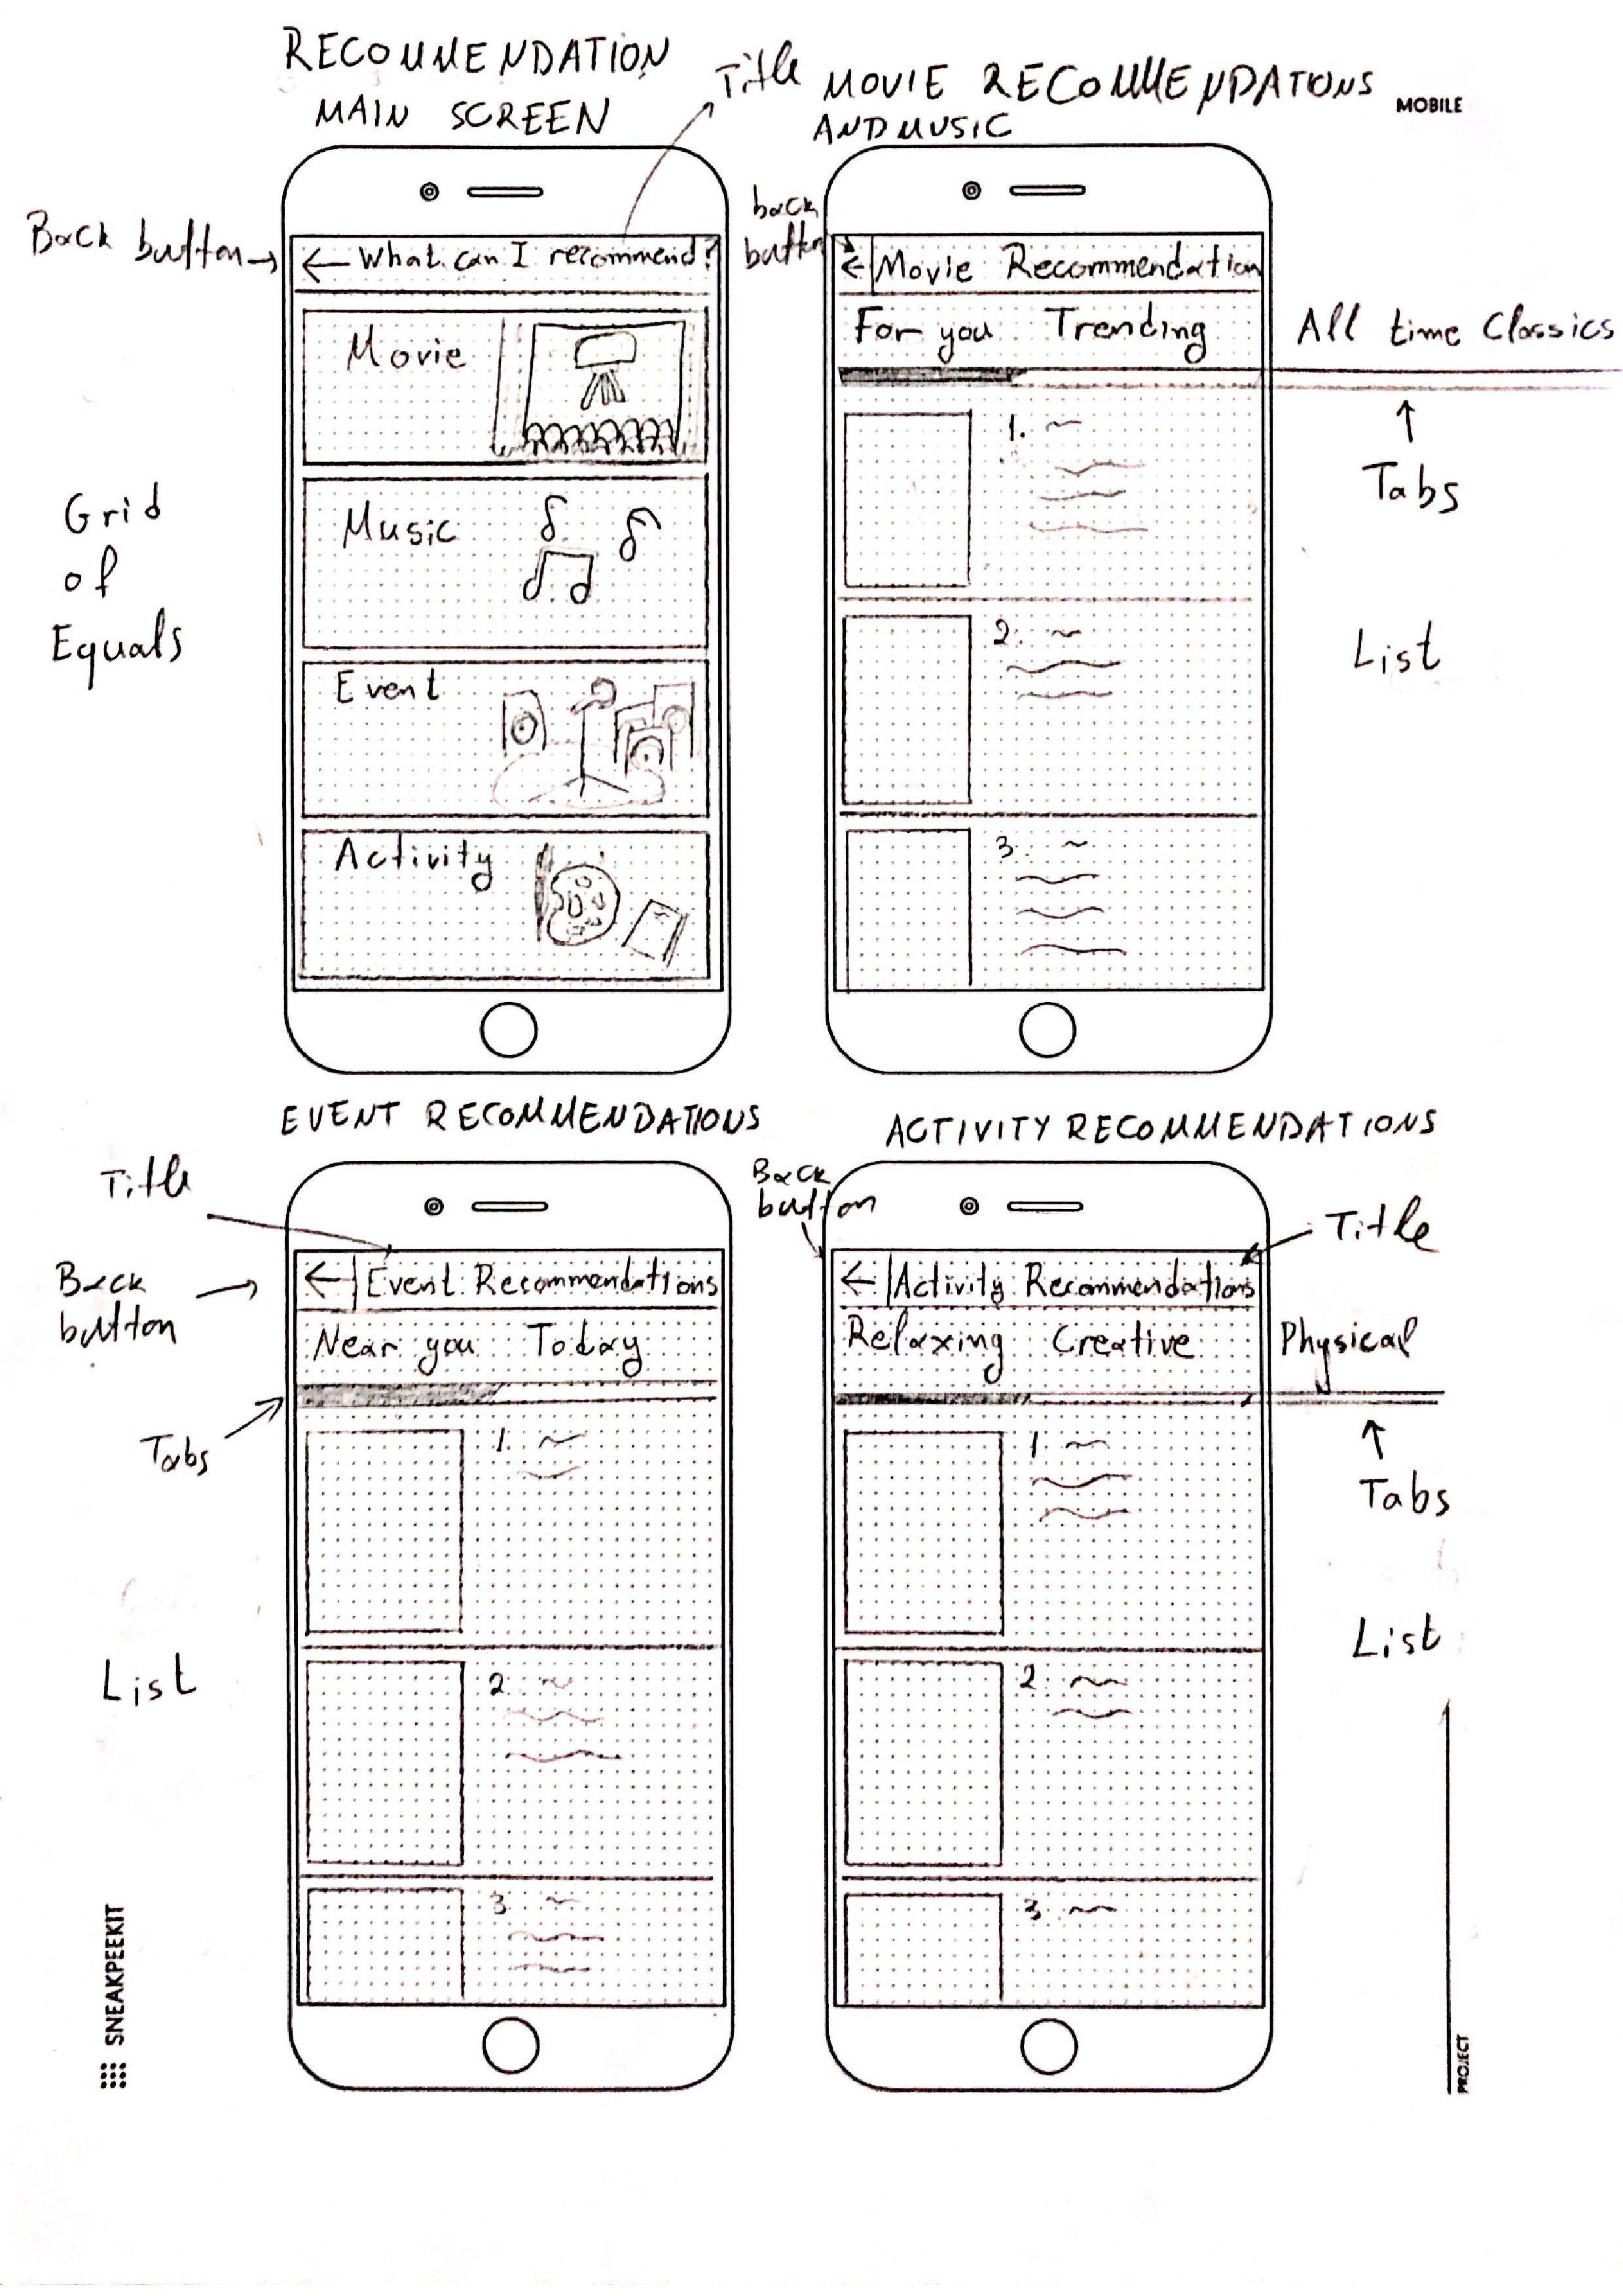 RECOMMENDATION
MAIN SCREEN
Title
MOVIE RECOMMENDATIONS
AND MUSIC
MOBILE
Back button
← What can I recommend?
Movie
Music
Event
Activity
Grid
of
Equals
back
button
← Movie Recommendation
For you Trending All time Classics
Tabs
1.
2.
3.
List
EVENT RECOMMENDATIONS
Title
Back
button
← Event Recommendations
Near you Today
Tabs
1.
2
3
List
ACTIVITY RECOMMENDATIONS
Back
button
Title
← Activity Recommendations
Relaxing Creative Physical
Tabs
1.
2.
3.
List
SNEAKPEEKIT
PROJECT